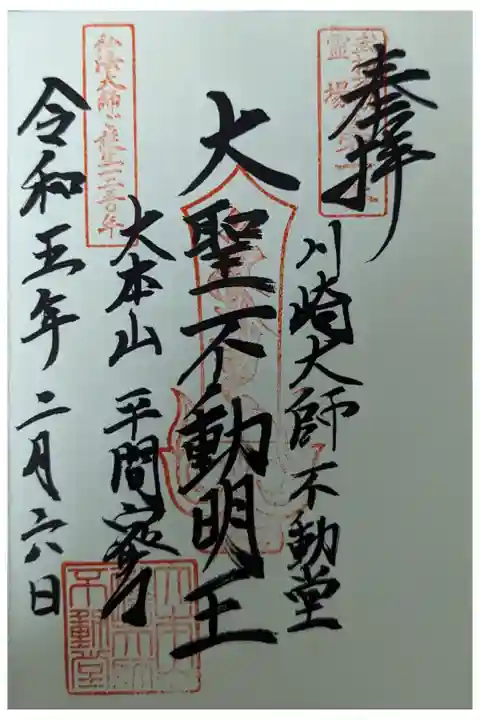 奉拝
川崎大師不動堂
大聖不動明王
大本山 平間寺
令和五年二月六日
弘法大師ご誕生一二五〇年
霊場
不動堂